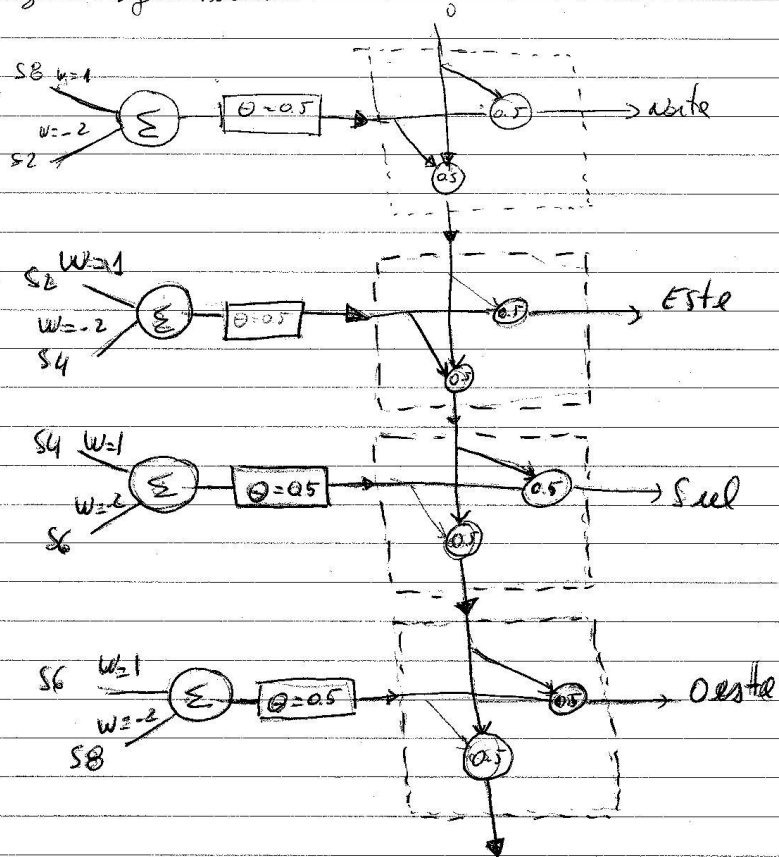 0
S8 w=1
w=-2
S2
Σ
θ=0.5
0.5
Norte
0.5
S2 W=1
W=-2
S4
Σ
θ=0.5
0.5
Este
0.5
S4 W=1
W=-2
S6
Σ
θ=0.5
0.5
Sul
0.5
S6 W=1
W=-2
S8
Σ
θ=0.5
0.5
Oeste
0.5